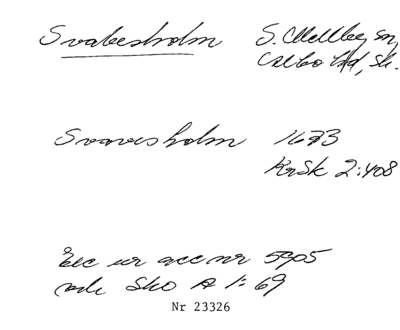 Svabesholm S. Mellby sn
Albo hd, Sk.
Svavisholm 1673
KrSk 2:408
Exc ur acc nr 5905
Sko A I: 69
Nr 23326